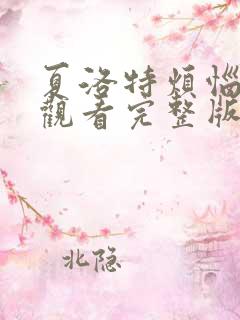 夏洛特煩惱
觀看完整版
北隐